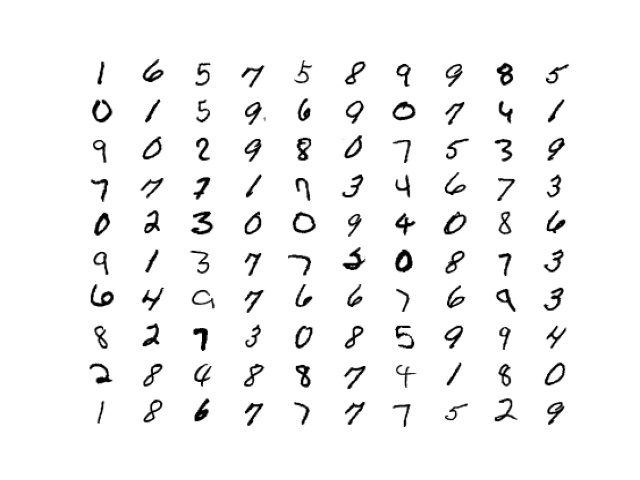 1 6 5 7 5 8 9 9 8 5
0 1 5 9 6 9 0 7 4 1
9 0 2 9 8 0 7 5 3 9
7 7 7 1 7 3 4 6 7 3
0 2 3 0 0 9 4 0 8 6
9 1 3 7 7 2 0 8 7 3
6 4 9 7 6 6 7 6 9 3
8 2 7 3 0 8 5 9 9 4
2 8 4 8 8 7 4 1 8 0
1 8 6 7 7 7 7 5 2 9